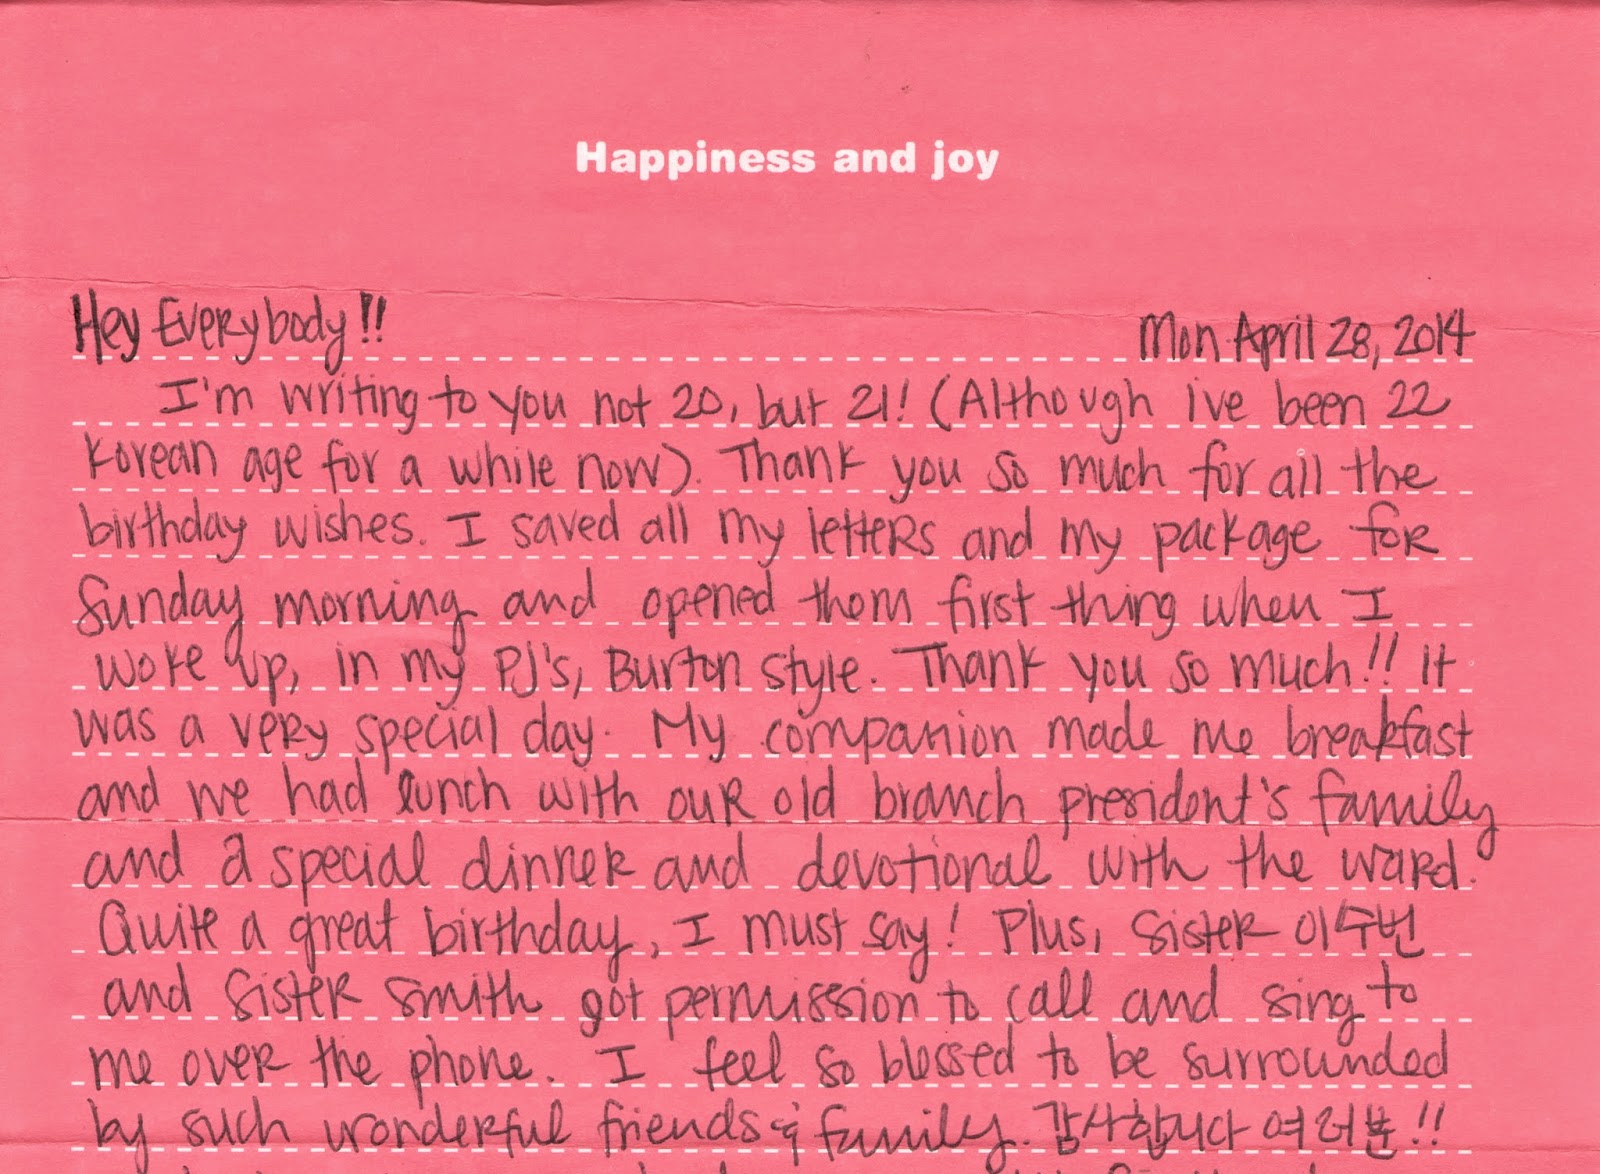 Happiness and joy
Hey Everybody!! Mon April 28, 2014
I'm writing to you not 20, but 21! (Although i've been 22
korean age for a while now). Thank you so much for all the
birthday wishes. I saved all my letters and my package for
Sunday morning and opened them first thing when I
woke up, in my PJ's, Burton style. Thank you so much!! It
was a very special day. My companion made me breakfast
and we had lunch with our old branch president's family
and a special dinner and devotional with the ward.
Quite a great birthday, I must say! Plus, Sister 이수빈
and Sister Smith got permission to call and sing to
me over the phone. I feel so blessed to be surrounded
by such wonderful friends & family. 감사합니다 여러분!!